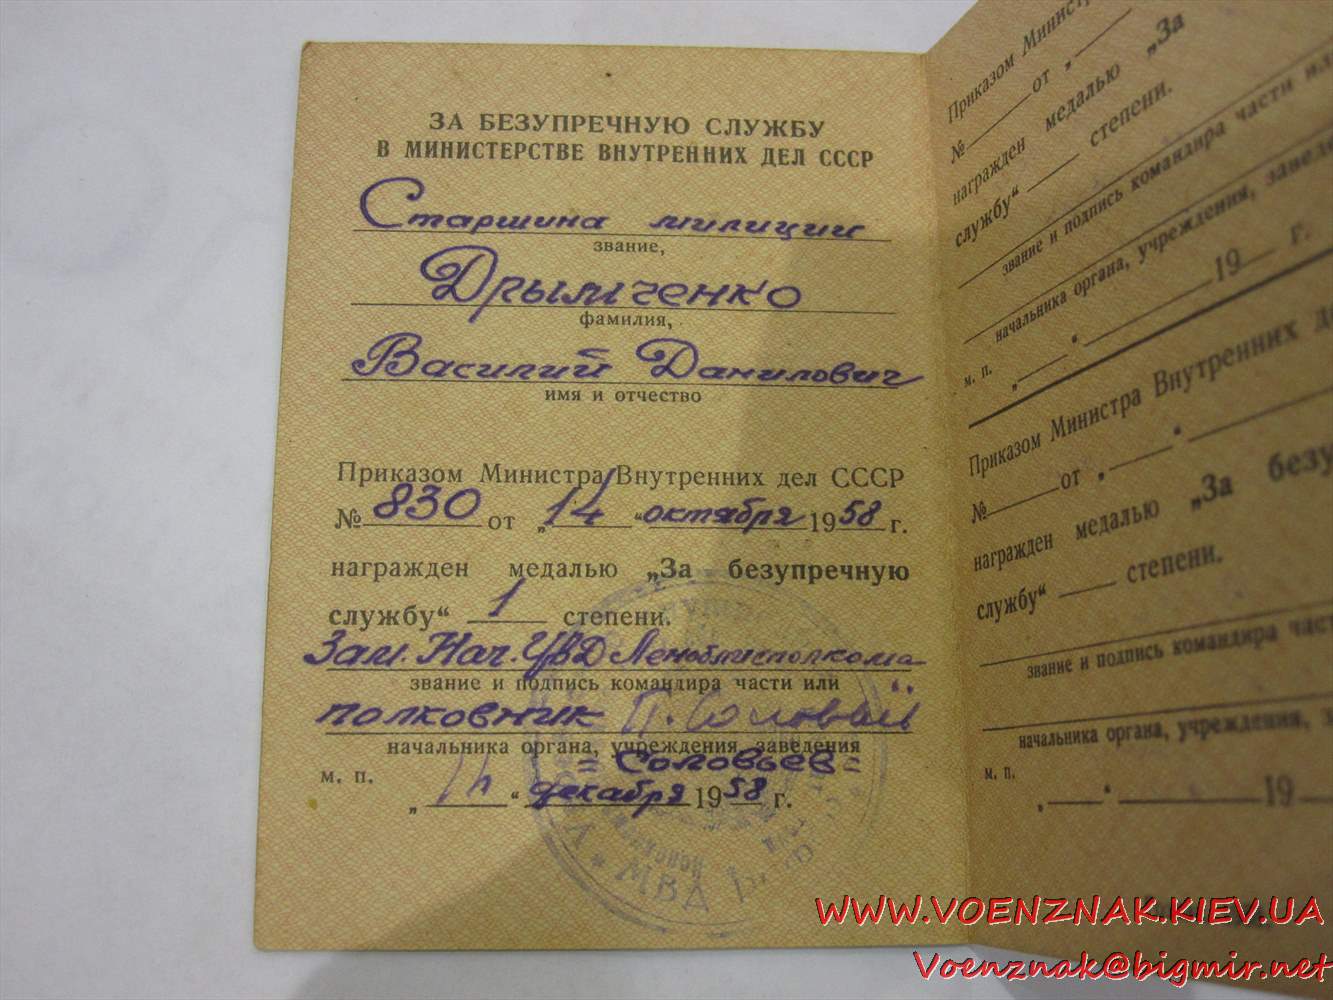 ЗА БЕЗУПРЕЧНУЮ СЛУЖБУ
В МИНИСТЕРСТВЕ ВНУТРЕННИХ ДЕЛ СССР
Старшина милиции
звание,
Дрымченко
фамилия,
Василий Данилович
имя и отчество
Приказом Министра Внутренних дел СССР
№ 830 от „14“ октября 1958 г.
награжден медалью „За безупречную
службу“ 1 степени.
Зам. Нач. УВД Леноблисполкома
звание и подпись командира части или
полковник П. Соловьев
начальника органа, учреждения, заведения
= Соловьев =
м. п.
„ “ декабря 1958 г.
МВД
Приказом Минис
№ от „
награжден медалью „За
службу“ степени.
звание и подпись командира части или
начальника органа, учреждения, заведе
м. п. „ “ 19 г.
Приказом Министра Внутренних д
№ от „ “
награжден медалью „За безуп
службу“ степени.
звание и подпись командира част
начальника органа, учреждения, з
м. п.
„ “ 19
WWW.VOENZNAK.KIEV.UA
Voenznak@bigmir.net